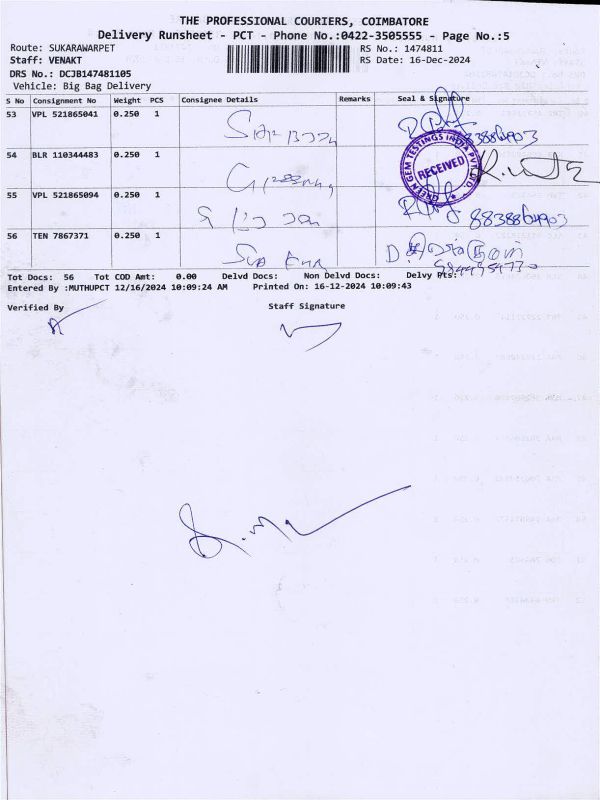 THE PROFESSIONAL COURIERS, COIMBATORE
Delivery Runsheet - PCT - Phone No.:0422-3505555 - Page No.:5
Route: SUKARAWARPET RS No.: 1474811
Staff: VENAKT RS Date: 16-Dec-2024
DRS No.: DCJB147481105
Vehicle: Big Bag Delivery
S No Consignment No Weight PCS Consignee Details Remarks Seal & Signature
53 VPL 521865041 0.250 1 8838864903
54 BLR 110344483 0.250 1
GREEN GEM TESTINGS INDIA PVT. LTD.
RECEIVED
55 VPL 521865094 0.250 1 8838864903
56 TEN 7867371 0.250 1
Tot Docs: 56 Tot COD Amt: 0.00 Delvd Docs: Non Delvd Docs: Delvy Pts:
Entered By :MUTHUPCT 12/16/2024 10:09:24 AM Printed On: 16-12-2024 10:09:43
Verified By Staff Signature